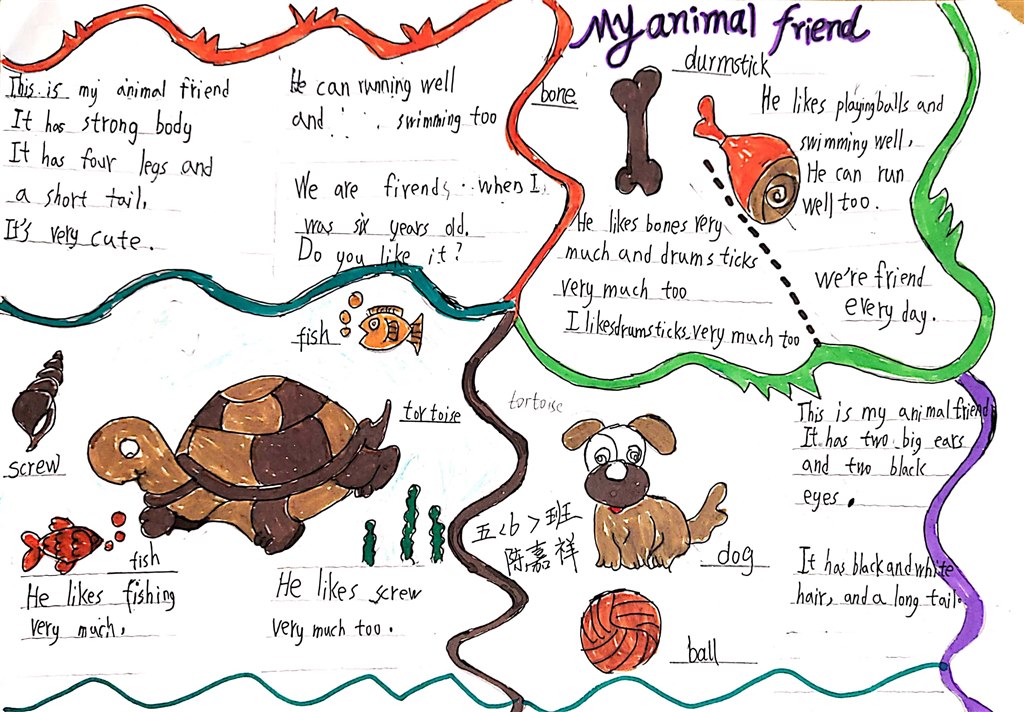 My animal friend
This is my animal friend
It has strong body
It has four legs and
a short tail,
It's very cute.
He can running well
and swimming too
We are firends when I
was six years old.
Do you like it?
bone
durmstick
He likes playing balls and
swimming well,
He can run
well too.
He likes bones very
much and drums ticks
very much too
I likes drumsticks very much too
we're friend
every day.
fish
tortoise
screw
fish
He likes fishing
very much,
He likes screw
very much too.
tortoise
五<6>班
陈嘉祥
dog
ball
This is my animal friend
It has two big ears
and two black
eyes.
It has black and white
hair, and a long tail.